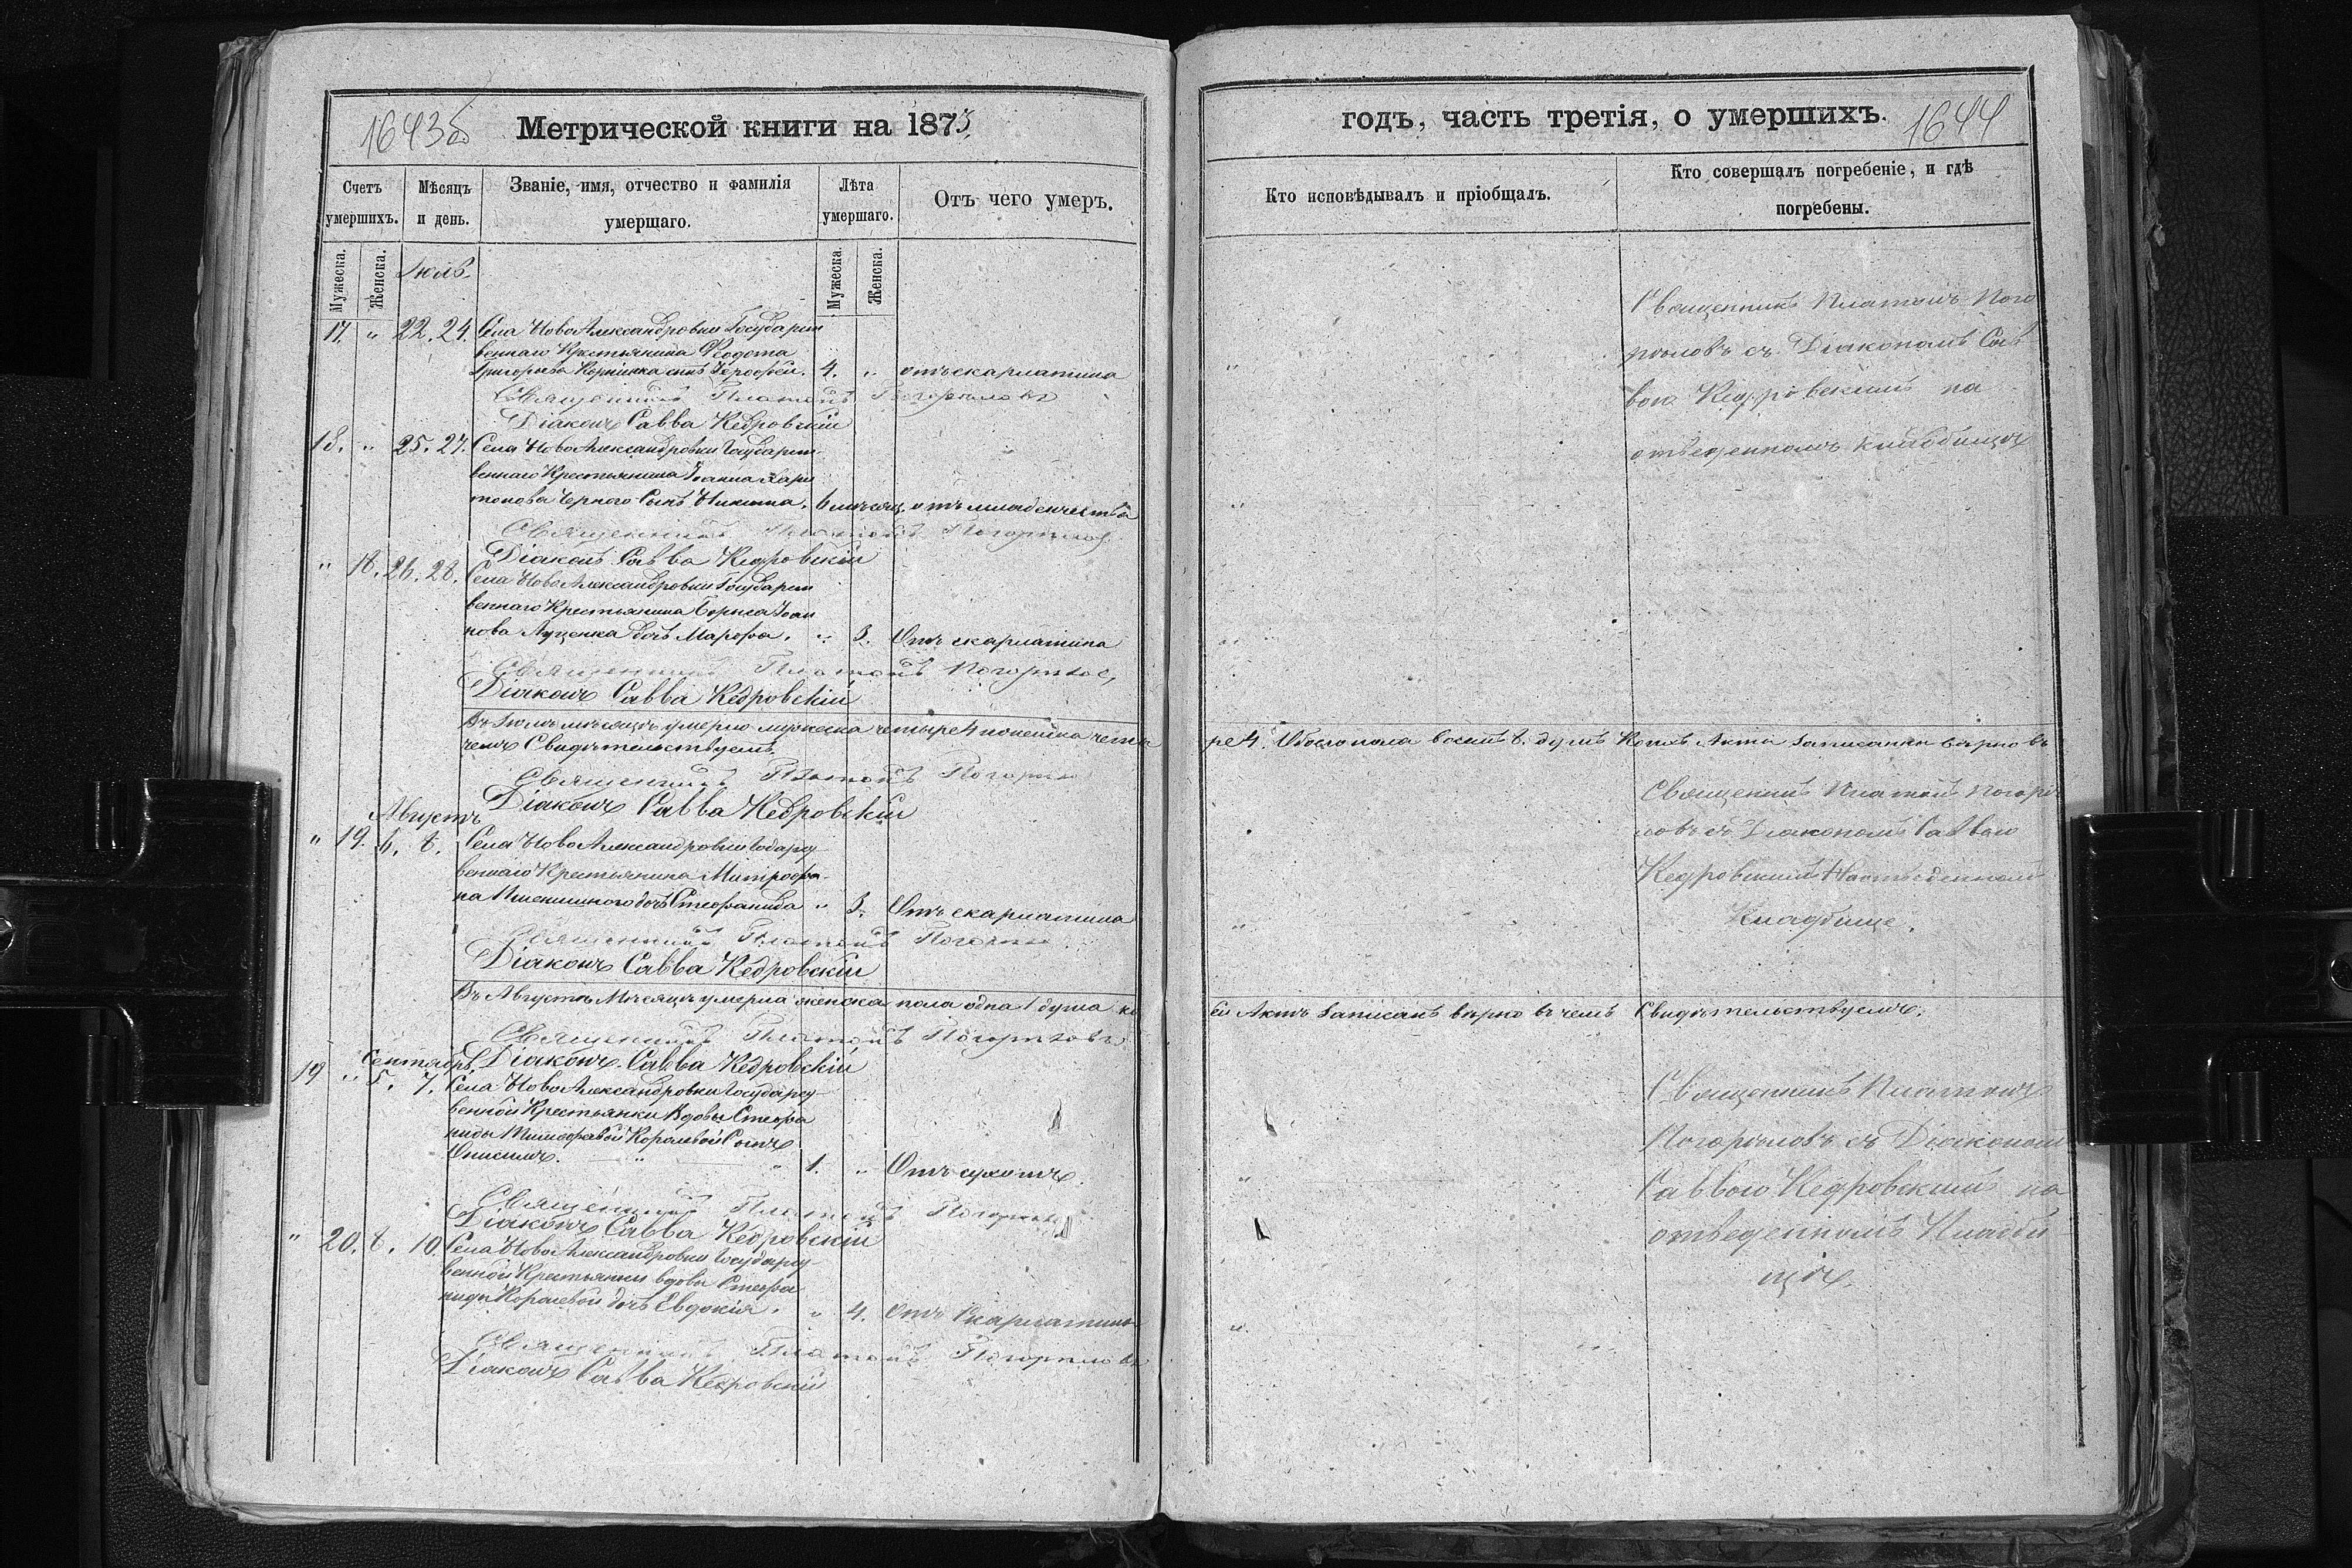 1643об
Метрической книги на 1873
Счетъ умершихъ.
Мѣсяцъ и день.
Званіе, имя, отчество и фамилія умершаго.
Лѣта умершаго.
Отъ чего умеръ.
Мужеска.
Женска.
Мужеска
Женска.
Іюль
17. " 22. 24. Села НовоАлександровки Государст
веннаго Крестьянина Феодота
Григорьева сынъ Іерофей. 4. " отъ скарлатина
Священникъ Платонъ Погорѣловъ
Діаконъ Савва Кедровскій
18. " 25. 27. Села НовоАлександровки Государст
веннаго Крестьянина Іоанна Хари
тонова Чернаго Сынъ Никита. 6 мѣсяц. отъ младенчества
Священникъ Платонъ Погорѣлов
Діаконъ Савва Кедровскій
" 18. 26. 28. Села НовоАлександровки Государст
веннаго Крестьянина Бориса Іоан
нова Луценка дочь Марфа. " 3. Отъ скарлатина
Священникъ Платонъ Погорѣлов
Діаконъ Савва Кедровскій
Въ Іюлѣ мѣсяцѣ умерло мужеска четыре 4 и женска четы
чемъ Свидѣтельствуемъ
Священникъ Платонъ Погорѣло
Діаконъ Савва Кедровскій
Августъ
" 19. 6. 8. Села НовоАлександровки Госдарс
веннаго Крестьянина Митрофа
на Пшенишного дочь Стефанида " 3. Отъ скарлатина
Священникъ Платонъ Погорѣло
Діаконъ Савва Кедровскій
Въ Августѣ Мѣсяцѣ умерла женска пола одна 1 душа ко
Священникъ Платонъ Погорѣловъ
Діаконъ Савва Кедровскій
Сентябрь
19 " 5. 7. Села НовоАлександровки Государс
венной Крестьянки Вдовы Стефа
ниды Тимофевой Королевой Сынъ
Онисимъ. " " 1. " Отъ сухотъ
Священникъ Платонъ Погорѣлов
Діаконъ Савва Кедровскій
" 20. 8. 10. Села НовоАлександровки Государс
венной Крестьянки вдовы Стефа
ниды Королевой дочь Евдокія. " 4. Отъ Скарлатины
Священникъ Платонъ Погорѣловъ
Діаконъ Савва Кедровскій
годъ, часть третія, о умершихъ.
1644
Кто исповѣдывалъ и пріобщалъ.
Кто совершалъ погребеніе, и гдѣ погребены.
Священникъ Платонъ Пого
рѣловъ съ Діакономъ Сав
вою Кедровскимъ на
отведенномъ кладбищѣ
ре 4. Обоего пола восемь 8. душъ Коихъ Акты Записанны вѣрно въ
Священникъ Платонъ Погорѣ
ловъ съ Діакономъ Саввою
Кедровскимъ На отведенном
Кладбище.
ей Актъ Записанъ вѣрно въ чемъ Свидѣтельствуемъ.
Священникъ Платонъ
Погорѣловъ съ Діаконом
Саввою Кедровскимъ на
отведенномъ Кладби
щѣ.